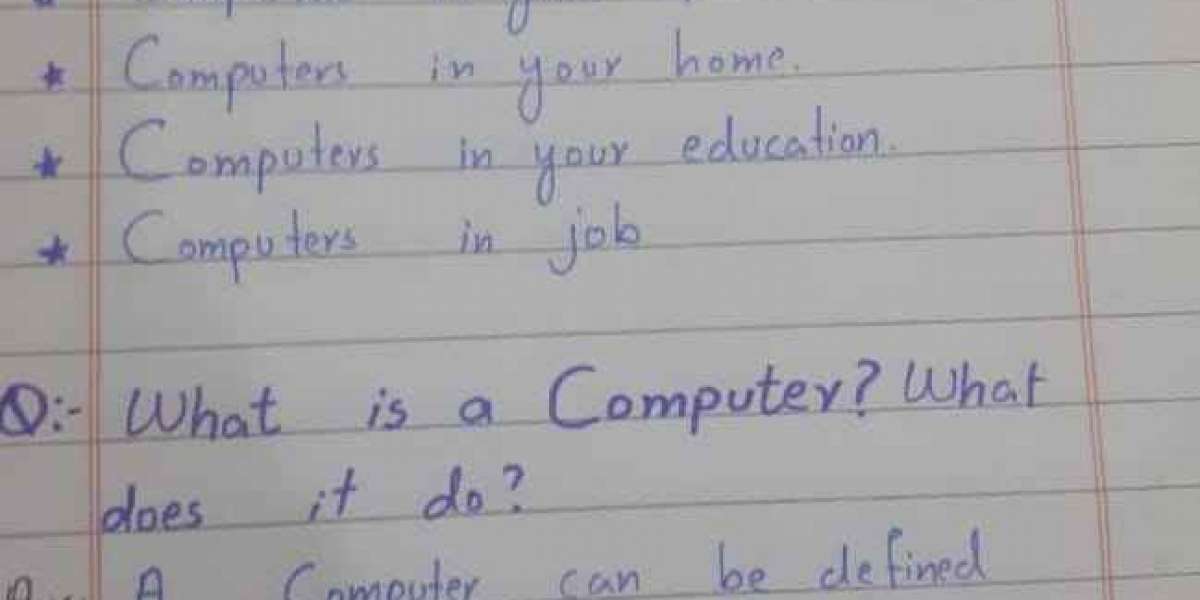 * Computers in your home.
* Computers in your education.
* Computers in job
Q:- What is a Computer? What
does it do?
A Computer can be defined